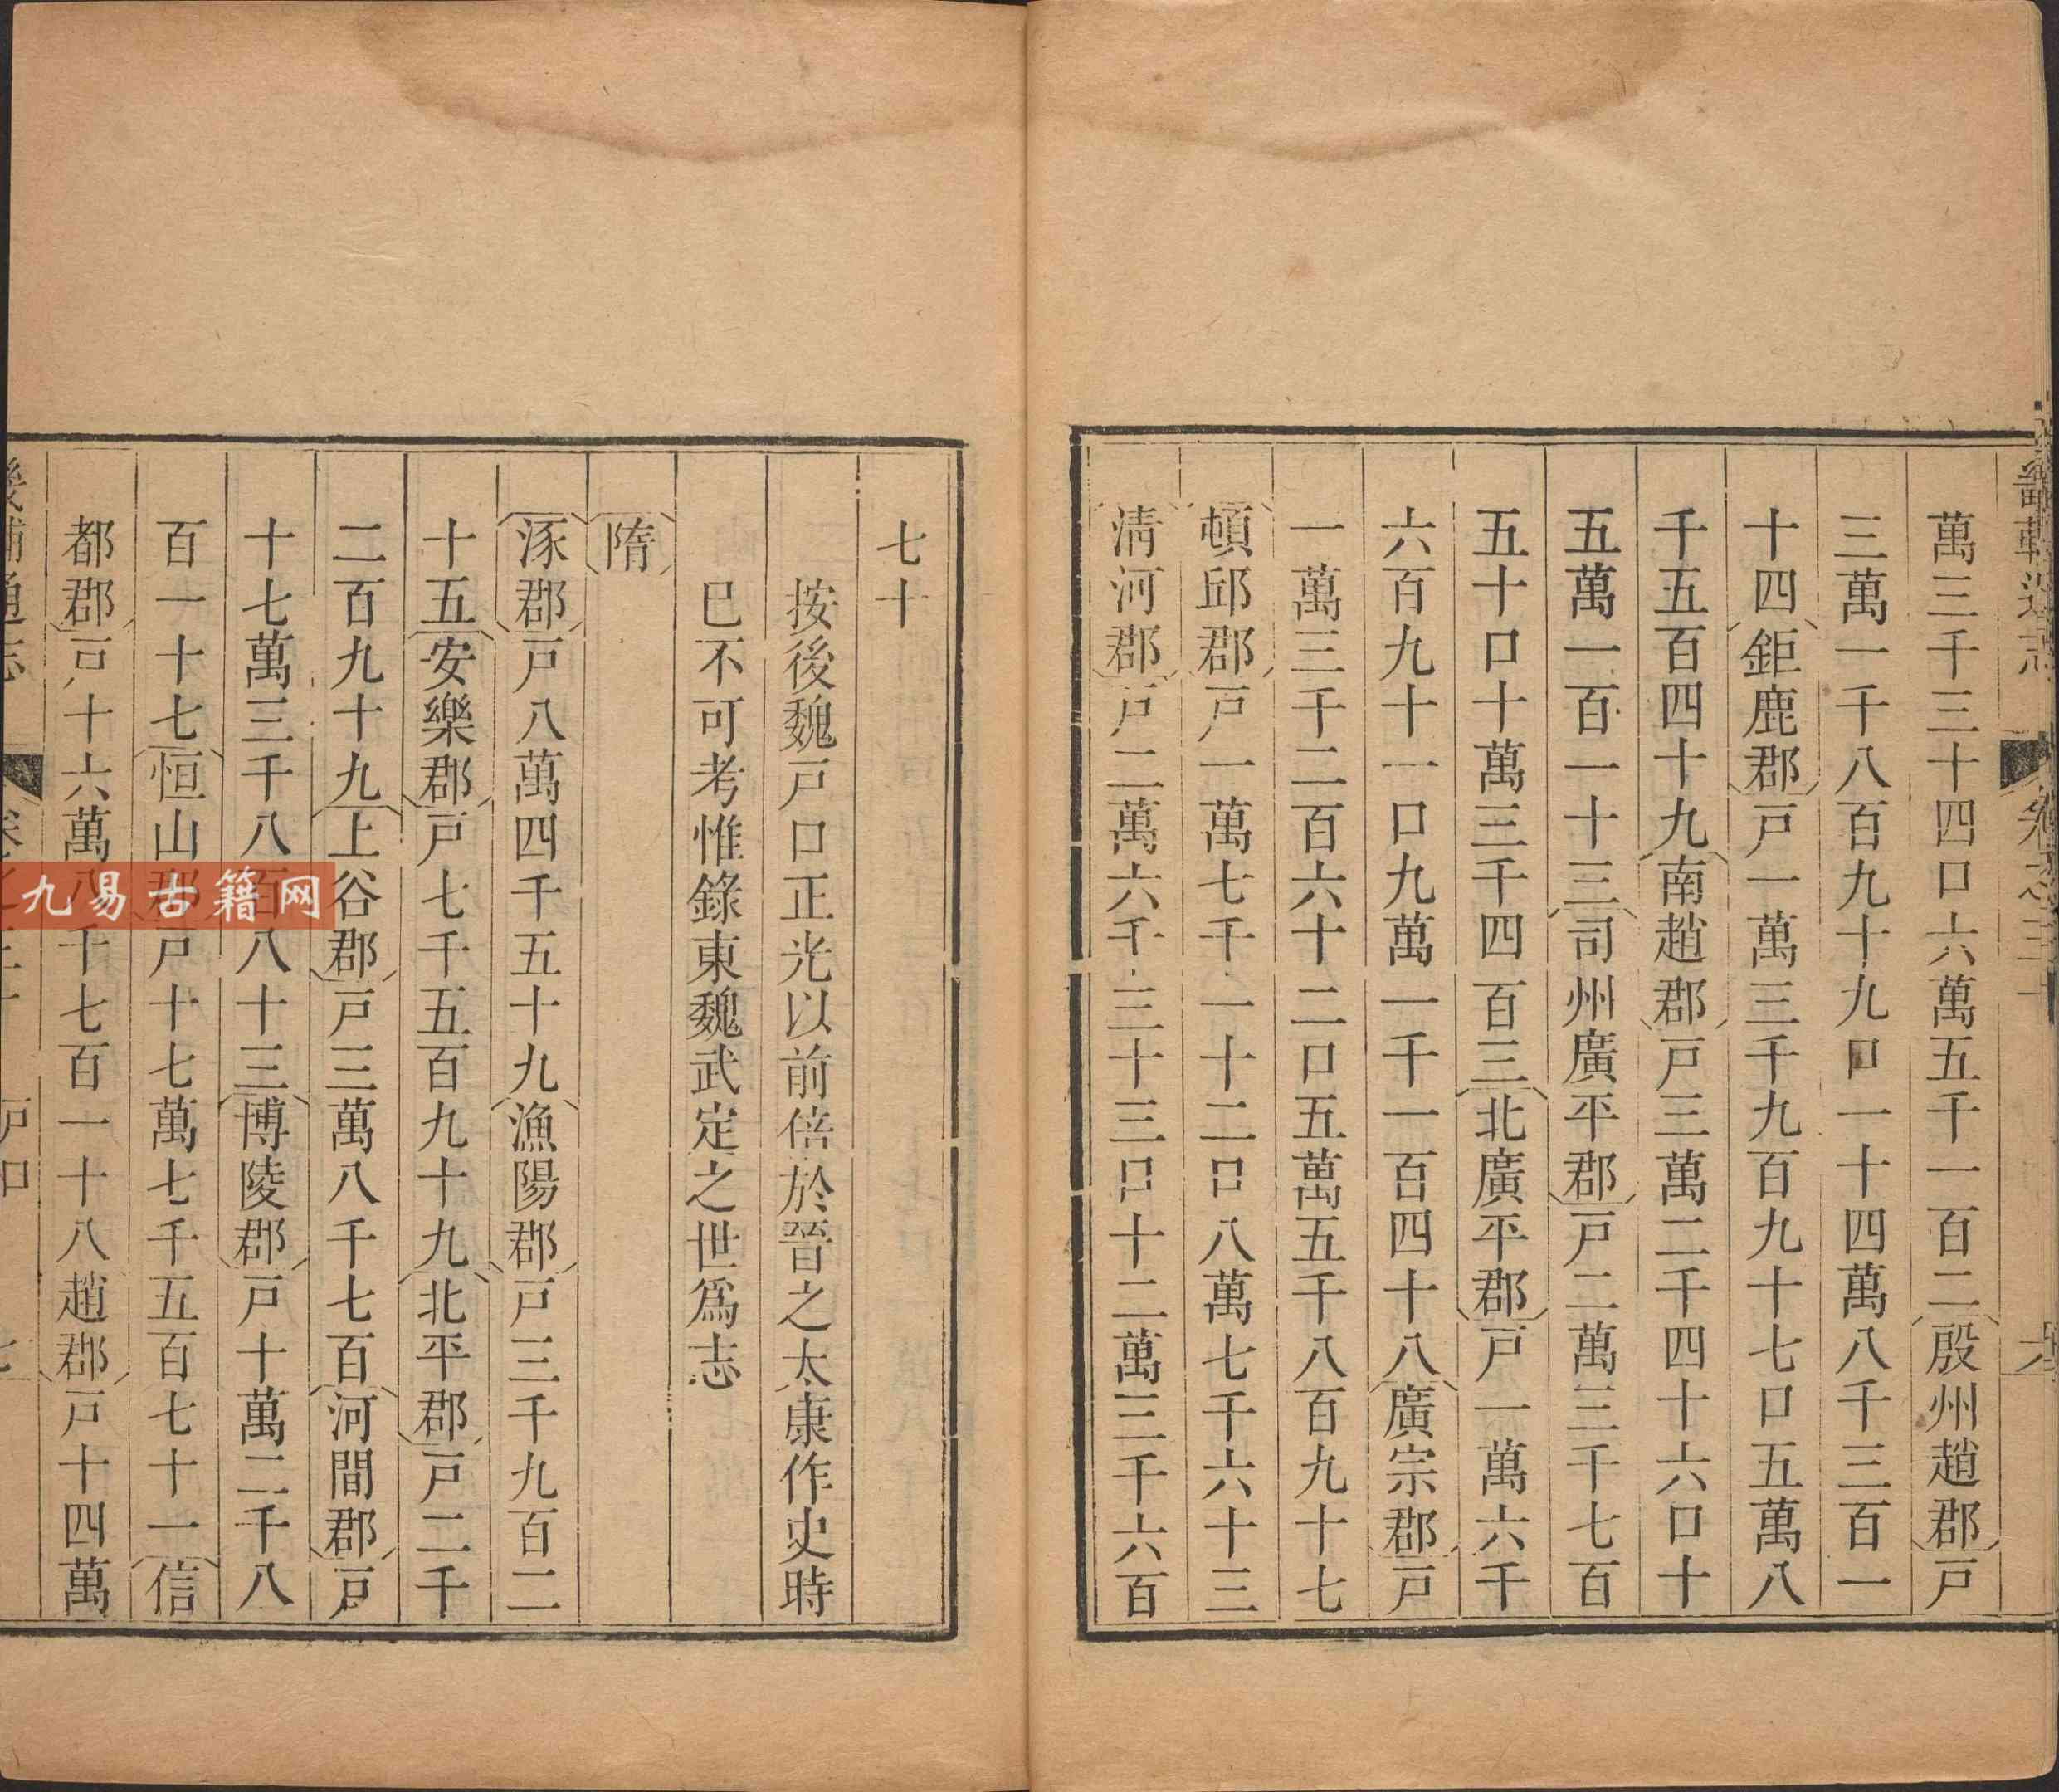 萬三千三十四口六萬五千一百二殷州趙郡戸
三萬一千八百九十九口一十四萬八千三百一
十四鉅鹿郡戸一萬三千九百九十七口五萬八
千五百四十九南趙郡戸三萬二千四十六口十
五萬一百一十三司州廣平郡戸二萬三千七百
五十口十萬三千四百三北廣平郡戸一萬六千
六百九十一口九萬一千一百四十八廣宗郡戸
一萬三千二百六十二口五萬五千八百九十七
頓邱郡戸一萬七千一十二口八萬七千六十三
清河郡戸二萬六千三十三口十二萬三千六百
七十
按後魏戸口正光以前倍於晉之太康作史時
已不可考惟錄東魏武定之世爲志
隋
涿郡戸八萬四千五十九漁陽郡戸三千九百二
十五安樂郡戸七千五百九十九北平郡戸二千
二百九十九上谷郡戸三萬八千七百河間郡戸
十七萬三千八百八十三博陵郡戸十萬二千八
百一十七恒山郡戸十七萬七千五百七十一信
都郡戸十六萬八千七百一十八趙郡戸十四萬
戸口
九易古籍网